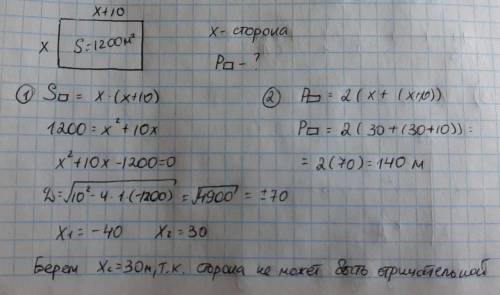 x+10
x
S=1200м²
x - сторона
P▭ - ?
① S▭ = x·(x+10)
1200 = x² + 10x
x² + 10x - 1200 = 0
D = √10² - 4·1·(-1200) = √4900 = ±70
x₁ = -40 x₂ = 30
② P▭ = 2(x + (x+10))
P▭ = 2(30+(30+10)) =
= 2(70) = 140 м
Берем x₂ = 30м, т.к. сторона не может быть отрицательной